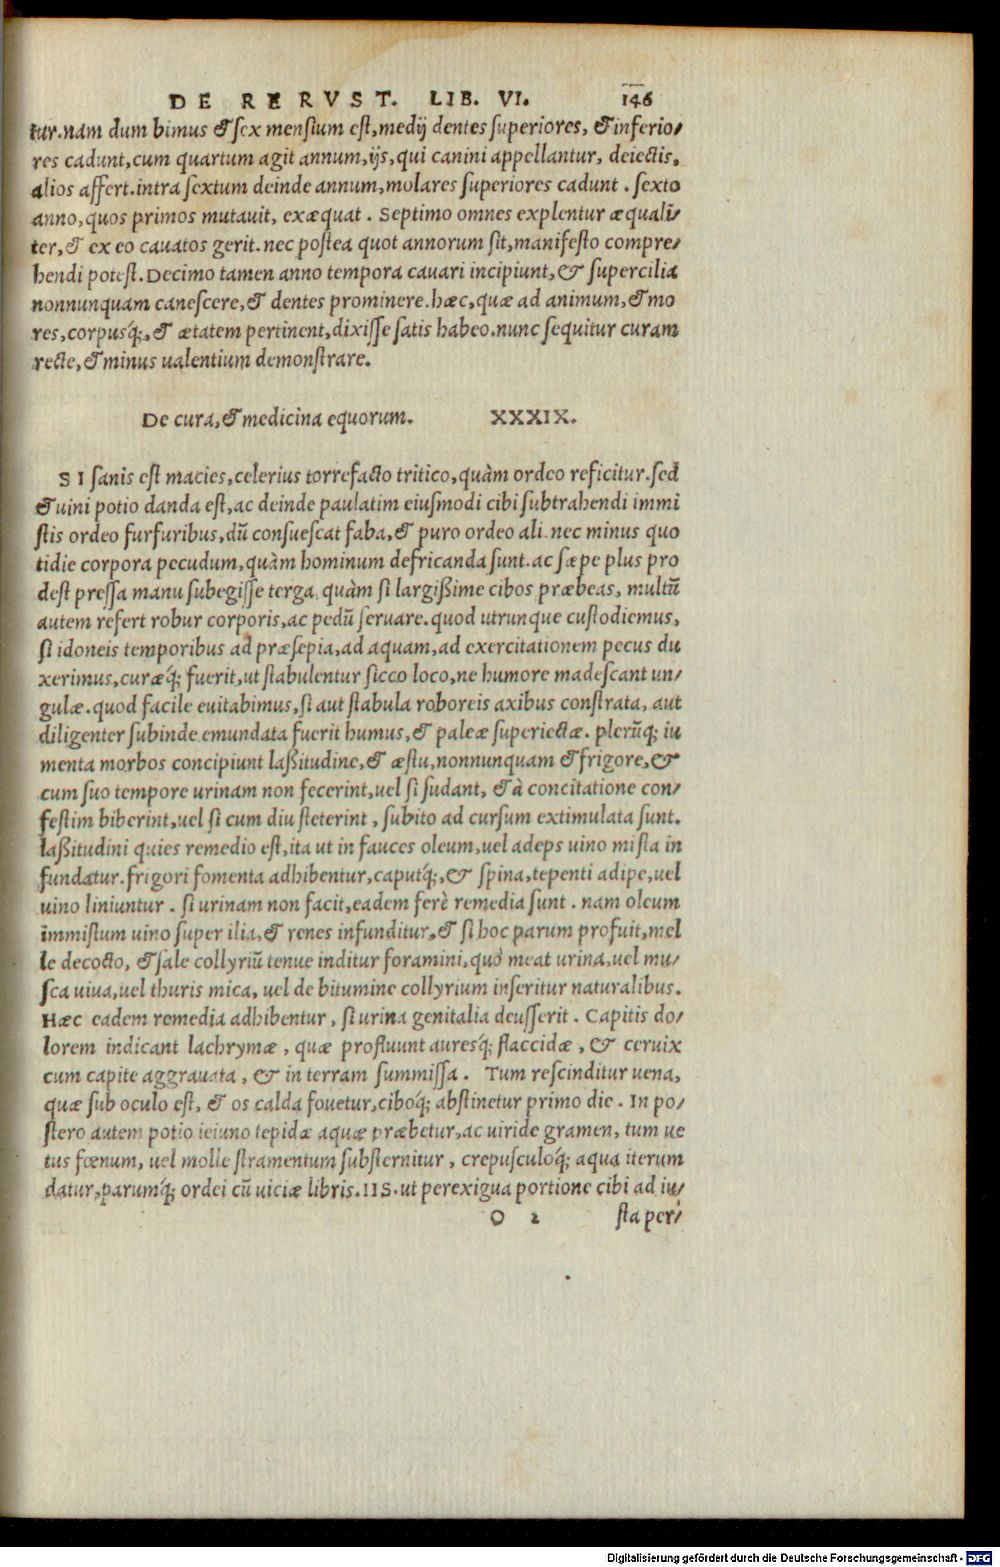 DE RE RVST. LIB. VI. 146
tur. nam dum bimus & sex mensium est, medij dentes superiores, & inferio/
res cadunt, cum quartum agit annum, ijs, qui canini appellantur, deiectis,
alios affert. intra sextum deinde annum, molares superiores cadunt. sexto
anno, quos primos mutauit, exæquat. Septimo omnes explentur æquali/
ter, & ex eo cauatos gerit. nec postea quot annorum sit, manifesto compre/
hendi potest. Decimo tamen anno tempora cauari incipiunt, & supercilia
nonnunquam canescere, & dentes prominere. hæc, quæ ad animum, & mo
res, corpusq́;, & ætatem pertinent, dixisse satis habeo. nunc sequitur curam
recte, & minus ualentium demonstrare.
De cura, & medicina equorum. XXXIX.
SI sanis est macies, celerius torrefacto tritico, quàm ordeo reficitur. sed
& uini potio danda est, ac deinde paulatim eiusmodi cibi subtrahendi immi
stis ordeo furfuribus, dū consuescat faba, & puro ordeo ali. nec minus quo
tidie corpora pecudum, quàm hominum defricanda sunt. ac sæpe plus pro
dest pressa manu subegisse terga, quàm si largißime cibos præbeas, multū
autem refert robur corporis, ac pedū seruare. quod utrunque custodiemus,
si idoneis temporibus ad præsepia, ad aquam, ad exercitationem pecus du
xerimus, curæq́; fuerit, ut stabulentur sicco loco, ne humore madescant un/
gulæ. quod facile euitabimus, si aut stabula roboreis axibus constrata, aut
diligenter subinde emundata fuerit humus, & paleæ superiectæ. plerūq; iu
menta morbos concipiunt laßitudine, & æstu, nonnunquam & frigore, &
cum suo tempore urinam non fecerint, uel si sudant, & à concitatione con/
festim biberint, uel si cum diu steterint, subito ad cursum extimulata sunt.
laßitudini quies remedio est, ita ut in fauces oleum, uel adeps uino mista in
fundatur. frigori fomenta adhibentur, caputq́;, & spina, tepenti adipe, uel
uino liniuntur. si urinam non facit, eadem ferè remedia sunt. nam oleum
immistum uino super ilia, & renes infunditur, & si hoc parum profuit, mel
le decocto, & sale collyriū tenue inditur foramini, quo meat urina, uel mu/
sca uiua, uel thuris mica, uel de bitumine collyrium inseritur naturalibus.
Hæc eadem remedia adhibentur, si urina genitalia deusserit. Capitis do/
lorem indicant lachrymæ, quæ profluunt auresq́; flaccidæ, & ceruix
cum capite aggrauata, & in terram summissa. Tum rescinditur uena,
quæ sub oculo est, & os calda fouetur, ciboq́; abstinetur primo die. In po/
stero autem potio ieiuno tepidæ aquæ præbetur, ac uiride gramen, tum ue
tus fœnum, uel molle stramentum substernitur, crepusculoq́; aqua iterum
datur, parumq́; ordei cū uiciæ libris. IIS. ut perexigua portione cibi ad iu/
O 2 sta per/
Digitalisierung gefördert durch die Deutsche Forschungsgemeinschaft - DFG